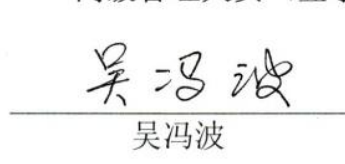 吴冯波
吴冯波